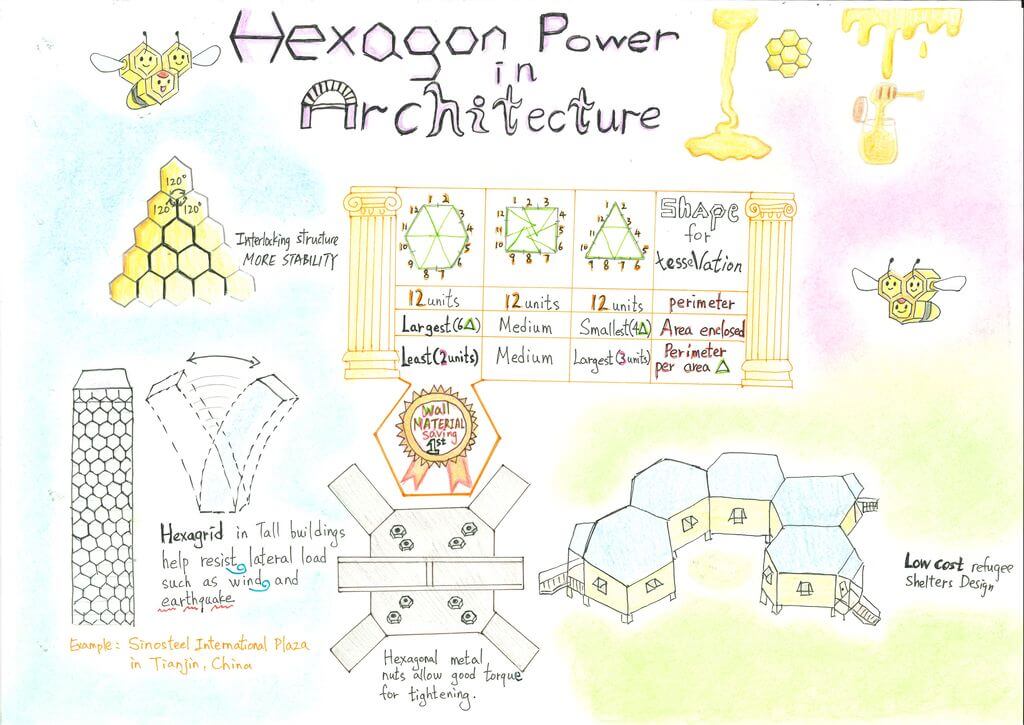 Hexagon Power
in
Architecture
120°
120° 120°
Interlocking structure
MORE STABILITY
1 2
12 3
11 4
10 5
9 8 7 6
1 2 3
12 4
11 5
10 6
9 8 7
1 2
12 3
11 4
10 5
9 8 7 6
SHAPE
for
tessellation
12 units 12 units 12 units perimeter
Largest(6△) Medium Smallest(4△) Area enclosed
Least(2units) Medium Largest(3units) Perimeter
per area △
Wall
MATERIAL
saving
1st
Hexagrid in Tall buildings
help resist lateral load
such as wind and
earthquake
Example: Sinosteel International Plaza
in Tianjin, China
Hexagonal metal
nuts allow good torque
for tightening.
Low cost refugee
Shelters Design